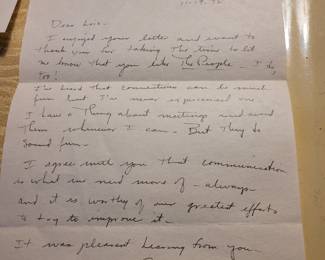 11-19-92
Dear Lois -
I enjoyed your letter and want to
thank you for taking the time to let
me know that you like The People - I do,
too!
I've heard that conventions can be much
fun but I've never experienced one.
I have a Thing about meetings and avoid
them whenever I can. But They do
sound fun.
I agree with you that communication
is what we need more of - always -
and it is worthy of our greatest efforts
to try to improve it.
It was pleasant hearing from you